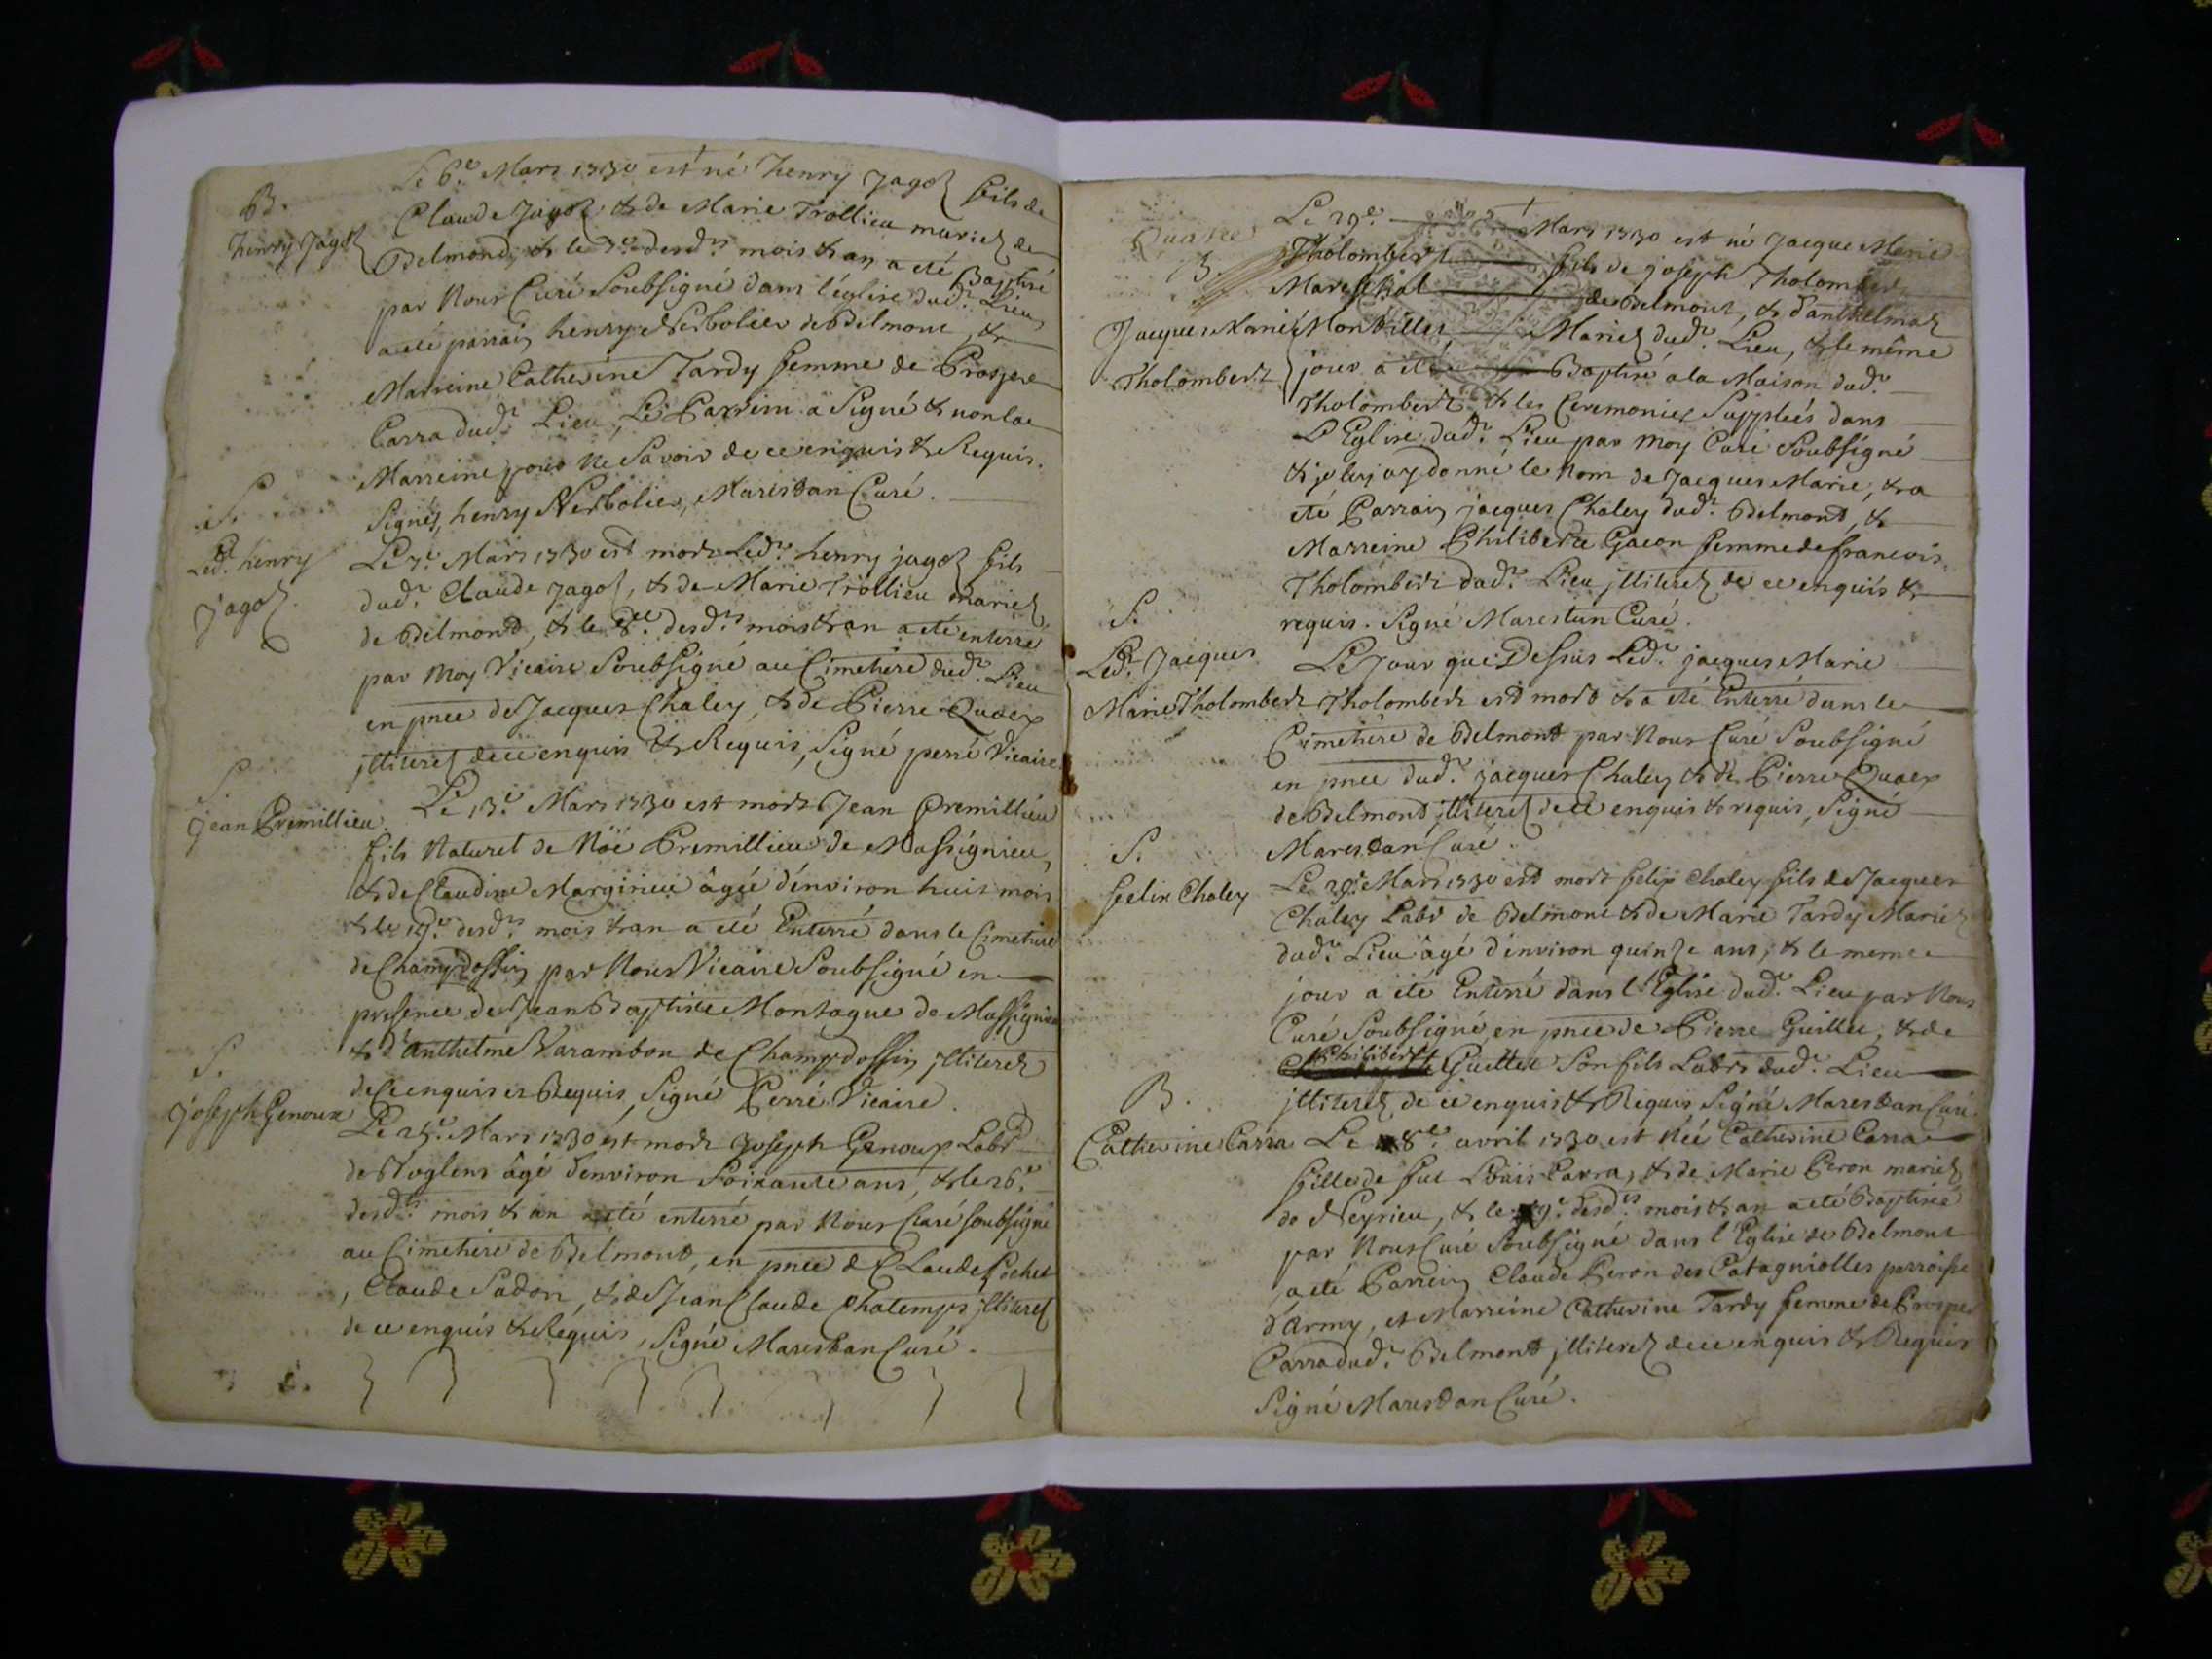 B.
henry Jagoz
Le 6.e Mars 1730 est né henry Jagoz fils de
Claude Jagoz, & de Marie Trollieu mariez de
Belmond, & le 7.e desd.ts mois & an a eté Baptisé
par Nous Curé Soubsigné dans l'église dud.t Lieu
a eté parrain henry Nerbolier de Belmont, &
Marreine Catherine Tardy femme de Prospere
Carra dud.t Lieu, Le Parrein a Signé & non la
Marreine pour Ne Savoir de ce enquis & Requis.
Signés, henry Nerbolier, Marestan Curé.
S.
Led.t henry
Jagoz.
Le 7.e Mars 1730 est mort Led.t henry jagoz fils
dud.t Claude Jagoz, & de Marie Trollieu mariez
de Belmond, & le 8.e desd.ts mois & an a eté enterré
par Moy Vicaire Soubsigné au Cimetiere dud.t Lieu
en pnce de Jacques Chaley, & de Pierre Quaex
jlliterez de ce enquis & Requis, Signé perré Vicaire
S.
Jean Premillieu.
Le 13.e Mars 1730 est mort Jean Premillieu
fils Naturel de Noë Premillieu de Massignieu,
& de Claudine Margirieu âgé d'environ huit mois
& le 19.e desd.ts mois & an a eté Enterré dans le Cimetiere
de Champdossin par Nous Vicaire Soubsigné en
presence de Jean Baptiste Montague de Massignieu
& d'Anthelme Varambon de Champdossin jlliterez
de Ce enquis et Requis, Signé Perré Vicaire.
S.
Joseph Genoux
Le 25.e Mars 1730 est mort Joseph Genoux Labr
de Voglens âgé d'environ Soixante ans, & le 26.e
desd.ts mois & an a eté enterré par Nous Curé soubsigné
au Cimetiere de Belmond, en pnce de Claude Pochet
, Claude Sadon, & de Jean Claude Chatemps jlliterez
de ce enquis & Requis, Signé Marestan Curé.
Quatre
B.
Jacques Marie
Tholombert
Le 29.e Mars 1730 est né Jacque Marie
Tholombert fils de joseph Tholombert
Mareschal de Belmont, & d'anthelmaz
Montillet Mariez dud.t Lieu, & le même
jour a eté Baptisé a la Maison dud.t
Tholombert & les Ceremonies Suppléés dans
L'Eglise dud.t Lieu par Moy Curé Soubsigné
& je luy ay donné le Nom de Jacques Marie, & a
eté Parrain jacques Chaley dud.t Belmond, &
Marreine Philiberte Gacon femme de francois
Tholombert dud.t Lieu jlliterez de ce enquis &
requis. Signé Marestan Curé.
S.
Led.t Jacques
Marie Tholombert
Le Jour que Dessus Led.t jacques Marie
Tholombert est mort & a eté Enterré dans le
Cimetiere de Belmond par Nous Curé Soubsigné
en pnce dud.t jacques Chaley & de Pierre Quaex
de Belmond jlliterez de ce enquis & requis, Signé
Marestan Curé.
S.
felix Chaley
Le 29.e Mars 1730 est mort felix Chaley fils de Jacques
Chaley Labr de Belmont & de Marie Tardy Mariez
dud.t Lieu âgé d'environ quinze ans, & le meme
jour a eté Enterré dans L'Eglise dud.t Lieu par Nous
Curé Soubsigné en pnce de Pierre Guillet, & de
Philibert Guillet Son fils Labrs dud.t Lieu
jlliterez de ce enquis & Requis Signé Marestan Curé.
B.
Catherine Carra
Le 8.e avril 1730 est Née Catherine Carra
fille de fut Louis Carra, & de Marie Peron mariez
de Neyrieu, & le 9.e desd.ts mois & an a eté Baptisée
par Nous Curé Soubsigné dans l'Eglise de Belmont
a eté Parrein Claude Peron des Catagniolles parroisse
d'Army, et Marreine Catherine Tardy femme de Prosper
Carra dud.t Belmond jlliterez de ce enquis & Requis
Signé Marestan Curé.